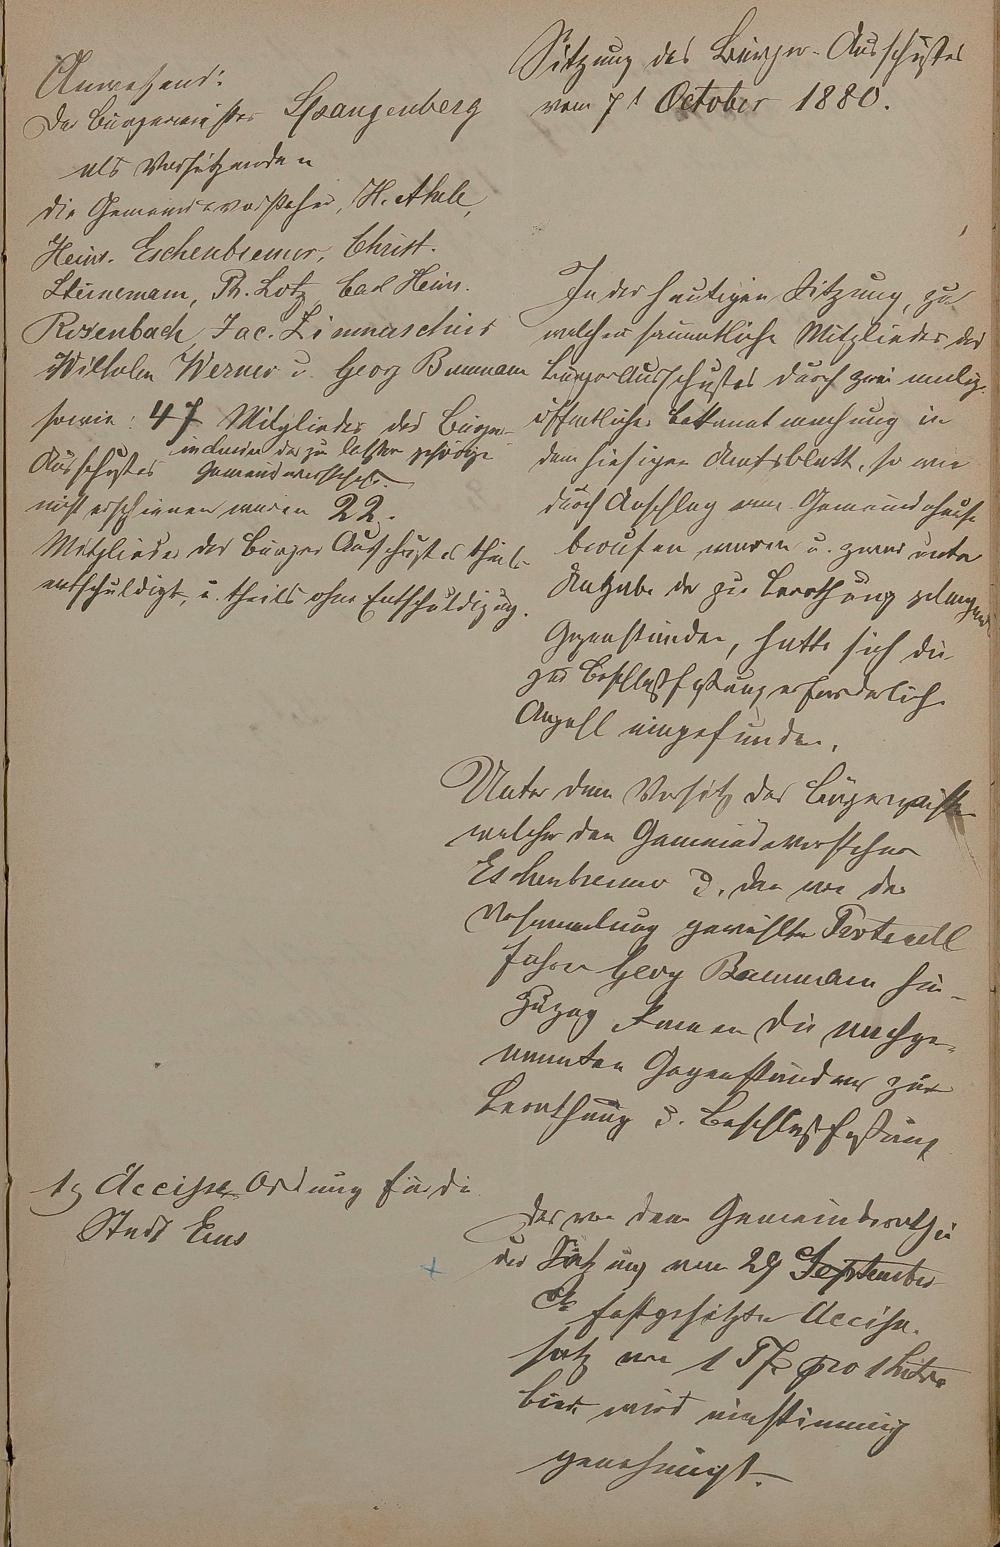 Sitzung des Bürger-Ausschußes
vom 7t October 1880.
Anwesend:
Der Bürgermeister Spangenberg
als Vorsitzenden
die Gemeindevorsteher, H. Thele,
Heinr. Eschenbrenner, Christ.
Stünemann, Ph. Lotz, Carl Heinr.
Rosenbach, Jac. Linnaschier
Wilhelm Werner u. Georg Baumann
sowie: 47 Mitglieder des Bürger-
Ausschußes incl. der zu letzter gehörige
Gemeindevorsteher.
nicht erschienen waren 22.
Mitglieder des Bürger Ausschußes theils
entschuldigt, u. theils ohne Entschuldigung.
In der heutigen Sitzung, zu
welcher sämmtliche Mitglieder des
BürgerAusschußes durch zwei malige
öffentliche Bekanntmachung in
dem hiesigen Amtsblatt, so wie
durch Anschlag am Gemeindehause
berufen waren u. zwar unter
Angabe der zur Berathung gelangenden
Gegenständen, hatte sich die
zur Beschlußfaßung erforderliche
Anzahl eingefunden.
Unter dem Vorsitz des Bürgermeister
welcher den Gemeindevorsteher
Eschenbrenner u. den von der
Versammlung gewählten Protocoll
führer Georg Baumann hin-
zuzog kamen die nachge-
nannten Gegenständen zur
Berathung u. Beschlußfaßung
1, Accise Ordnung für die
Stadt Ems
Der von dem Gemeinderathe in
der Sitzung vom 29 September
cr. festgesetzte Accise-
satz von 1 Pf pro 1 Liter
Bier wird einstimmig
genehmigt.